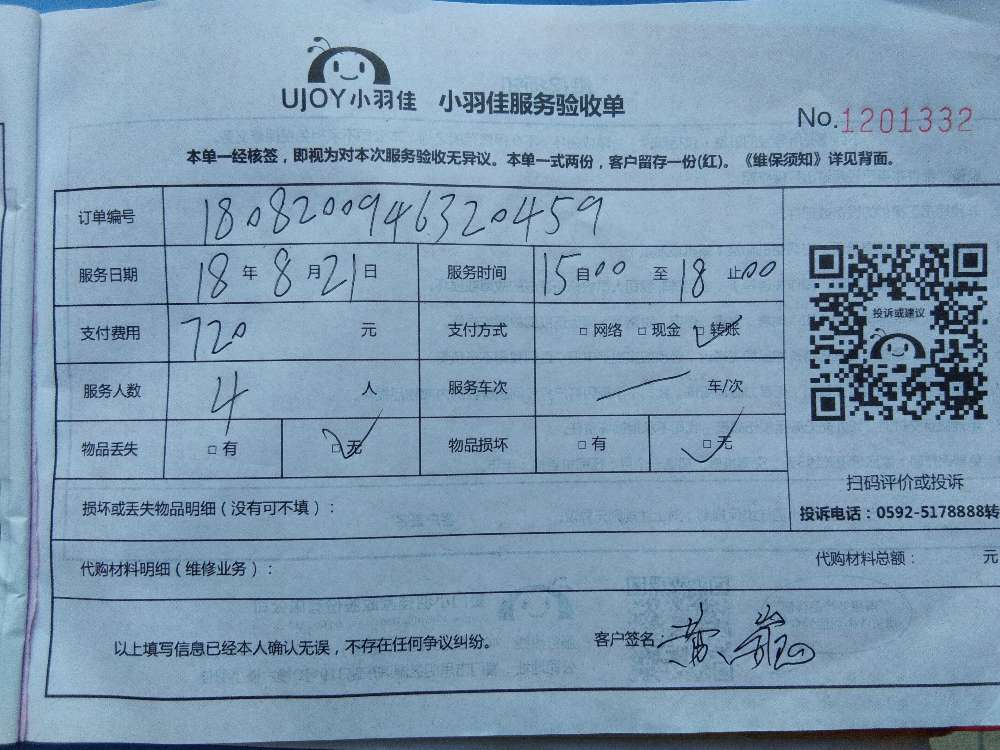 UJOY小羽佳 小羽佳服务验收单
No.1201332
本单一经核签，即视为对本次服务验收无异议。本单一式两份，客户留存一份(红)。《维保须知》详见背面。
订单编号 1808200946320459
服务日期 18年8月21日 服务时间 15自00至18止00
支付费用 720元 支付方式 □网络 □现金 □转账
服务人数 4人 服务车次 车/次
物品丢失 □有 □无 物品损坏 □有 □无
投诉或建议
扫码评价或投诉
投诉电话：0592-5178888转
损坏或丢失物品明细（没有可不填）：
代购材料明细（维修业务）： 代购材料总额： 元
以上填写信息已经本人确认无误，不存在任何争议纠纷。 客户签名：